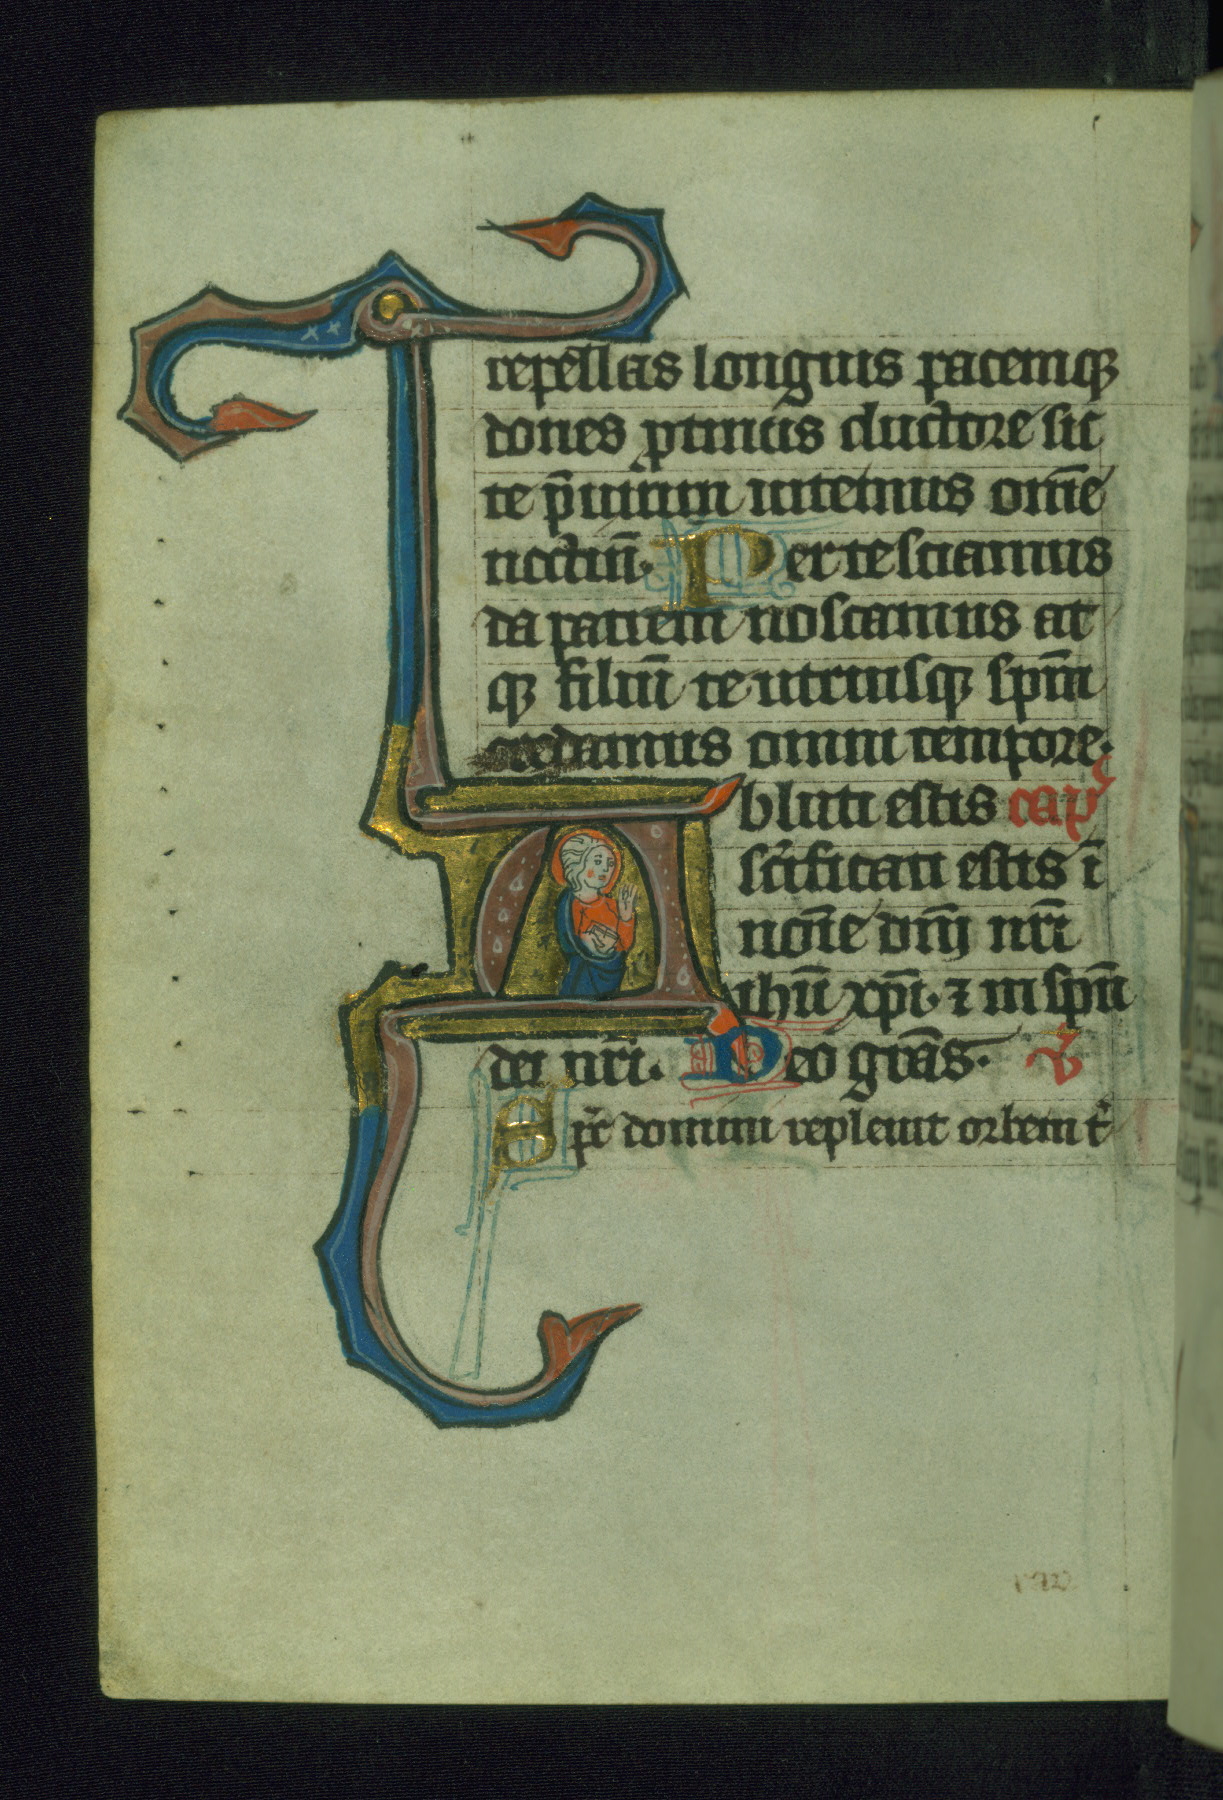 repellas longius pacemq̨
dones ꝓtinus ductore sic
te p̄uium uitemus om̄e
noctiū. Per te sciamus
da patrem noscamus at
q̨ filiū te utriusq̨ sp̄m
credamus omni tempore.
Abluti estis cap̄
sc̄ificati estis ī
noīe dn̄j nr̄i
ihū xp̄i. ⁊ in spū
dei nr̄i. Deo gr̄as. V̄
Spc̄ domini repleuit orbem t̄